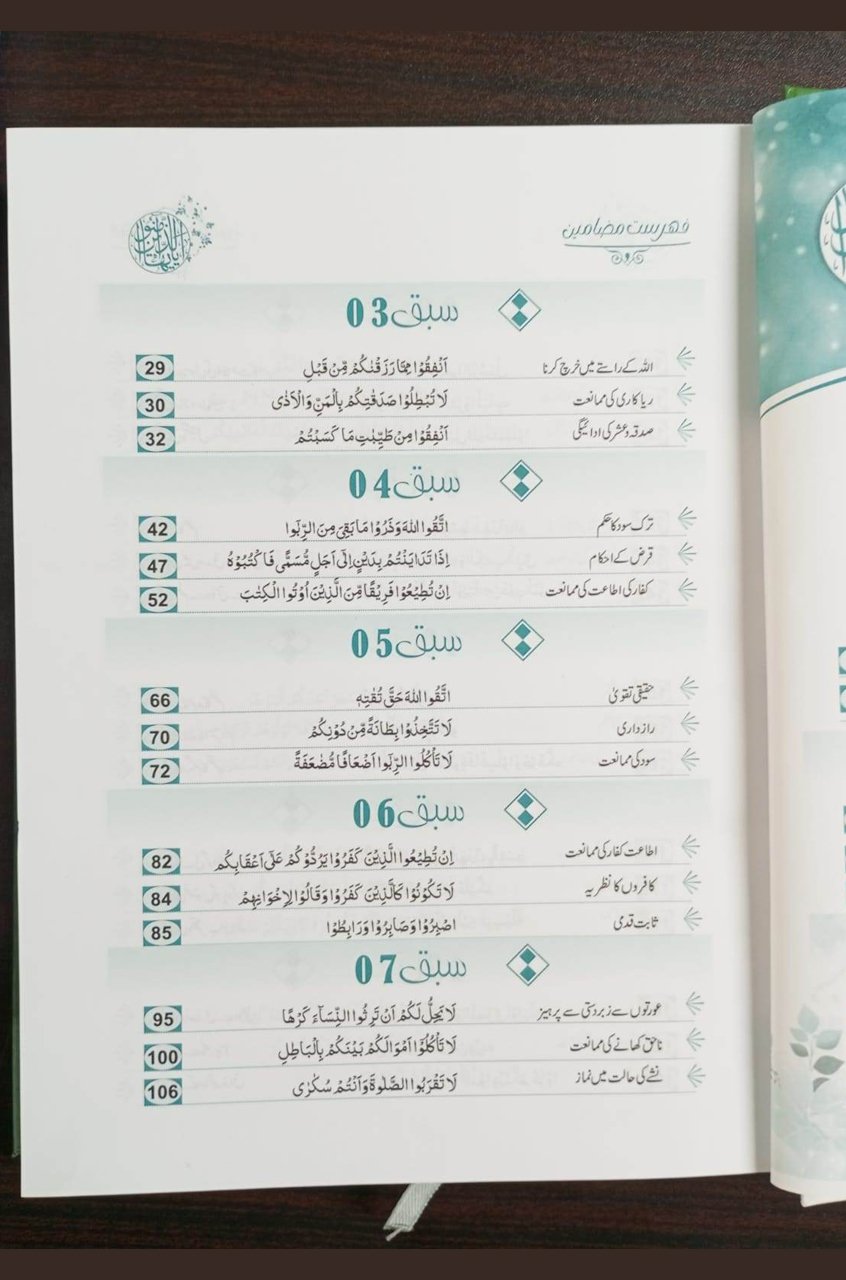 فہرست مضامین
یایھا الذین اٰمنوا
سبق 03
اللہ کے راستے میں خرچ کرنا اَنْفِقُوْا مِمَّا رَزَقْنٰكُمْ مِّنْ قَبْلِ 29
ریاکاری کی ممانعت لَا تُبْطِلُوْا صَدَقٰتِكُمْ بِالْمَنِّ وَالْاَذٰى 30
صدقہ و عشر کی ادائیگی اَنْفِقُوْا مِنْ طَيِّبٰتِ مَا كَسَبْتُمْ 32
سبق 04
ترک سود کا حکم اتَّقُوا اللهَ وَذَرُوْا مَا بَقِيَ مِنَ الرِّبٰوا 42
قرض کے احکام اِذَا تَدَايَنْتُمْ بِدَيْنٍ اِلٰٓى اَجَلٍ مُّسَمًّى فَاكْتُبُوْهُ 47
کفار کی اطاعت کی ممانعت اِنْ تُطِيْعُوْا فَرِيْقًا مِّنَ الَّذِيْنَ اُوْتُوا الْكِتٰبَ 52
سبق 05
حقیقی تقویٰ اتَّقُوا اللهَ حَقَّ تُقٰتِهٖ 66
رازداری لَا تَتَّخِذُوْا بِطَانَةً مِّنْ دُوْنِكُمْ 70
سود کی ممانعت لَا تَاْكُلُوا الرِّبٰوا اَضْعَافًا مُّضٰعَفَةً 72
سبق 06
اطاعت کفار کی ممانعت اِنْ تُطِيْعُوا الَّذِيْنَ كَفَرُوْا يَرُدُّوْكُمْ عَلٰٓى اَعْقَابِكُم 82
کافروں کا نظریہ لَا تَكُوْنُوْا كَالَّذِيْنَ كَفَرُوْا وَقَالُوْا لِاِخْوَانِهِمْ 84
ثابت قدمی اصْبِرُوْا وَصَابِرُوْا وَرَابِطُوْا 85
سبق 07
عورتوں سے زبردستی سے پرہیز لَا يَحِلُّ لَكُمْ اَنْ تَرِثُوا النِّسَآءَ كَرْهًا 95
ناحق کھانے کی ممانعت لَا تَاْكُلُوْٓا اَمْوَالَكُمْ بَيْنَكُمْ بِالْبَاطِلِ 100
نشے کی حالت میں نماز لَا تَقْرَبُوا الصَّلٰوةَ وَاَنْتُمْ سُكٰرٰى 106